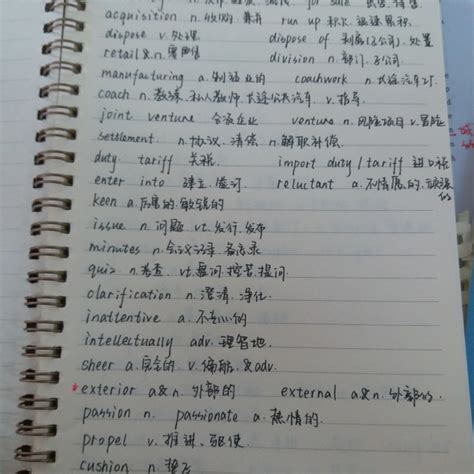 for sale
acquisition n. 收购 兼并 run up 积欠 迅速累积
dispose v. 处理 dispose of 剥离(子公司) 处置
retail & n. 零售
division n. 部门. 子公司
manufacturing a. 制造业的 coachwork n. 长途汽车厂
coach n. 教练. 私人教师. 长途公共汽车 v. 指导.
joint venture 合资企业 venture n. 风险项目 v. 冒险
settlement n. 协议. 清偿 n. 解职补偿
duty tariff 关税 import duty / tariff 进口税
enter into 建立. 签订 reluctant a. 不情愿的.
keen a. 厉害的. 敏锐的
issue n. 问题 vt. 发行. 发布
minutes n. 会议记录. 备忘录
quiz n. 考查. vt. 盘问. 挖苦. 提问.
clarification n. 澄清. 净化.
inattentive a. 不专心的
intellectually adv. 理智地.
sheer a. 完全的 v. 偏航. & adv.
* exterior a & n. 外部的 external a & n. 外部的.
passion n. passionate a. 热情的.
propel v. 推进. 驱使
cushion n. 垫子